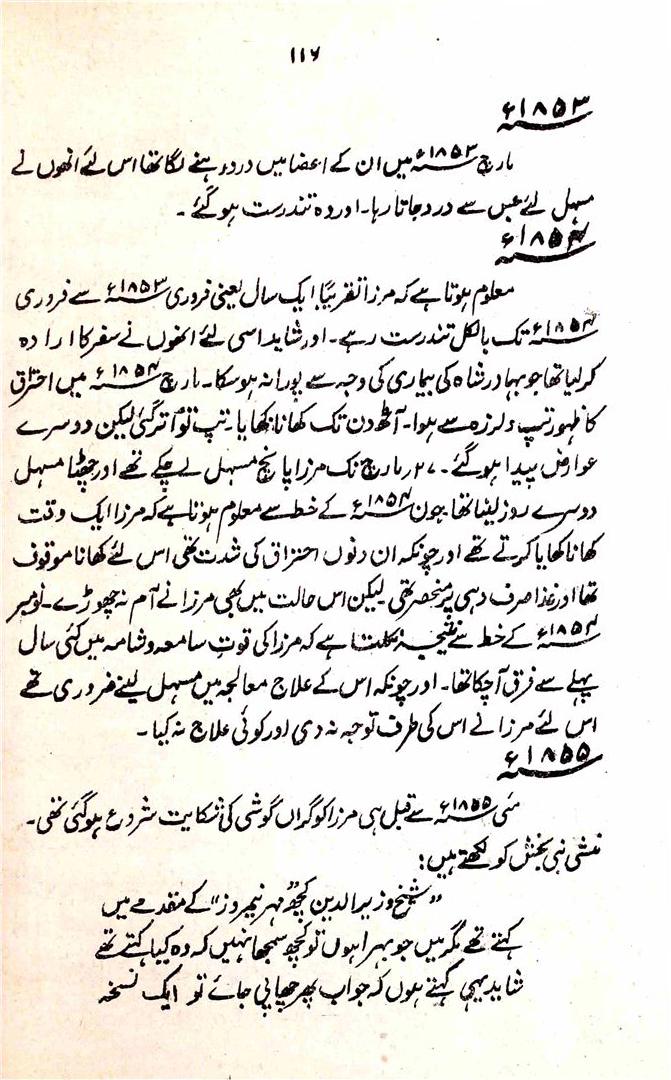 ۱۱۶
۱۸۵۳ء
مارچ ۱۸۵۳ء میں ان کے اعضا میں درد رہنے لگا تھا اس لئے انھوں نے
مسہل لئے جس سے درد جاتا رہا۔ اور وہ تندرست ہو گئے۔
۱۸۵۴ء
معلوم ہوتا ہے کہ مرزا تقریباً ایک سال یعنی فروری ۱۸۵۳ء سے فروری
۱۸۵۴ء تک بالکل تندرست رہے۔ اور شاید اسی لئے انھوں نے سفر کا ارادہ
کر لیا تھا جو بہادر شاہ کی بیماری کی وجہ سے پورا نہ ہو سکا۔ مارچ ۱۸۵۴ء میں احتراق
کا ظہور تپ و لرزہ سے ہوا۔ آٹھ دن تک کھانا نہ کھایا۔ تپ تو اتر گئی لیکن دوسرے
عوارض پیدا ہو گئے۔ ۲۷ر مارچ تک مرزا پانچ مسہل لے چکے تھے اور چھٹا مسہل
دوسرے روز لینا تھا جون ۱۸۵۴ء کے خط سے معلوم ہوتا ہے کہ مرزا ایک وقت
کھانا کھایا کرتے تھے اور چونکہ ان دنوں احتراق کی شدت تھی اس لئے کھانا موقوف
تھا اور غذا صرف دہی پر منحصر تھی لیکن اس حالت میں بھی مرزا نے آم نہ چھوڑے۔ نومبر
۱۸۵۴ء کے خط سے نتیجہ نکلتا ہے کہ مرزا کی قوت سامعہ و شامہ میں کئی سال
پہلے سے فرق آ چکا تھا۔ اور چونکہ اس کے علاج معالجہ میں مسہل لینے ضروری تھے
اس لئے مرزا نے اس کی طرف توجہ نہ دی اور کوئی علاج نہ کیا۔
۱۸۵۵ء
مئی ۱۸۵۵ء سے قبل ہی مرزا کو گراں گوشی کی شکایت شروع ہو گئی تھی۔
منشی نبی بخش کو لکھتے ہیں:
"شیخ وزیرالدین کچھ "مہر نیمروز" کے مقدمے میں
کہتے تھے مگر میں جو بہرا ہوں تو کچھ سمجھا نہیں کہ وہ کیا کہتے تھے
شاید یہی کہتے ہوں کہ جو اب پھر چھاپی جائے تو ایک نسخہ